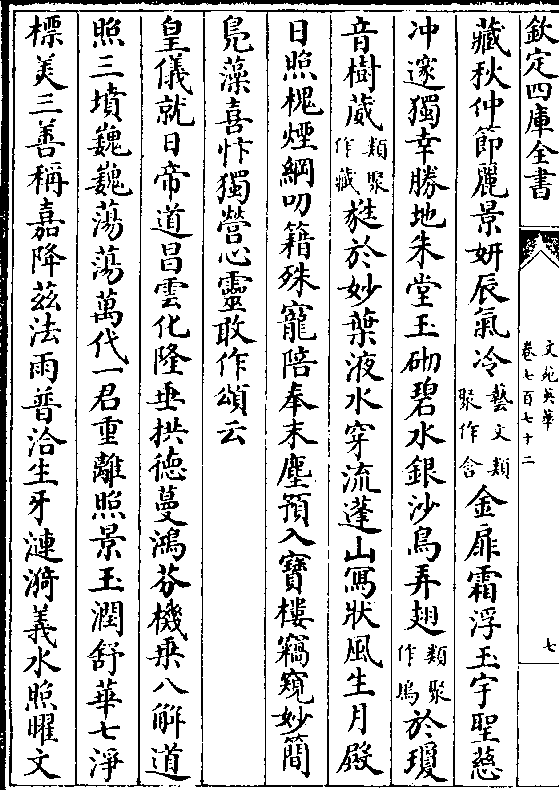 欽定四庫全書
文苑英華
卷七百七十二
七
藏秋仲節麗景妍辰氣冷藝文類聚作含金扉霜浮玉宇聖慈
冲邃獨幸勝地朱堂玉砌碧水銀沙鳥弄翅類聚作鳴於瓊
音樹葳類聚作藏蕤於妙葉液水穿流蓬山寫狀風生月殿
日照槐煙綱叨籍殊寵陪奉末塵預入寶樓竊窺妙簡
鳧藻喜忭獨營心靈敢作頌云
皇儀就日帝道昌雲化隆垂拱德蔓鴻芬機乗八解道
照三墳巍巍蕩蕩萬代一君重離照景玉潤舒華七淨
標美三善稱嘉降兹法雨普洽生牙漣漪義水照曜文